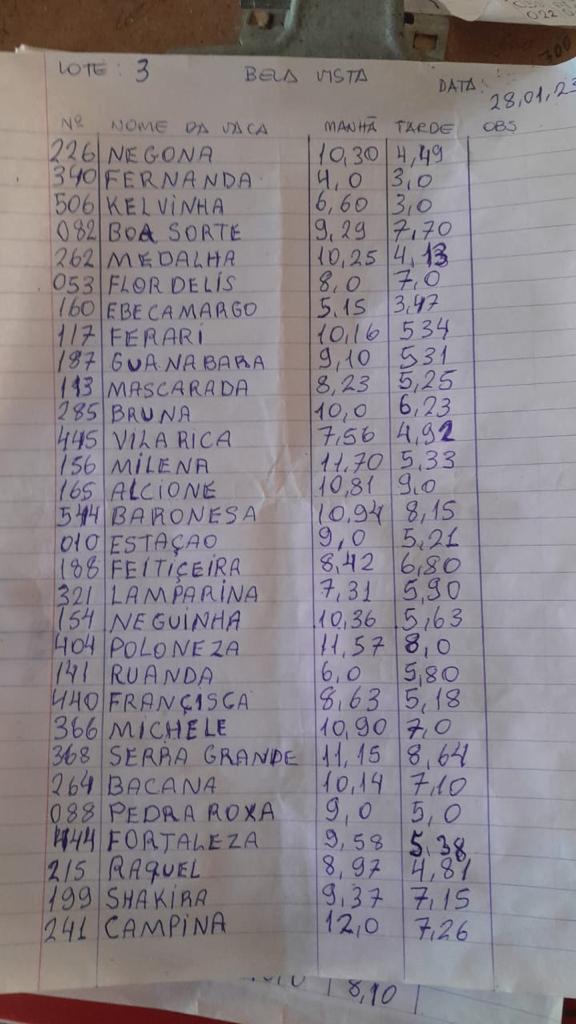 LOTE: 3 BELA VISTA DATA: 28,01,23
Nº NOME DA VACA MANHÃ TARDE OBS
226 NEGONA 10,30 4,49
340 FERNANDA 4,0 3,0
506 KELVINHA 6,60 3,0
082 BOA SORTE 9,29 7,70
262 MEDALHA 10,25 4,13
053 FLOR DELIS 8,0 7,0
160 EBECAMARGO 5,15 3,47
117 FERARI 10,16 534
187 GUANABARA 9,10 531
113 MASCARADA 8,23 5,25
285 BRUNA 10,0 6,23
445 VILA RICA 7,56 4,92
156 MILENA 11,70 5,33
165 ALCIONE 10,81 9,0
544 BARONESA 10,94 8,15
010 ESTAÇAO 9,0 5,21
188 FEITIÇEIRA 8,42 6,80
321 LAMPARINA 7,31 5,90
154 NEGUINHA 10,36 5,63
404 POLONEZA 11,57 8,0
141 RUANDA 6,0 5,80
440 FRANÇISCA 8,63 5,18
366 MICHELE 10,90 7,0
368 SERRA GRANDE 11,15 8,64
264 BACANA 10,14 7,10
088 PEDRA ROXA 9,0 5,0
444 FORTALEZA 9,58 5,38
215 RAQUEL 8,97 4,81
199 SHAKIRA 9,37 7,15
241 CAMPINA 12,0 7,26
8,10